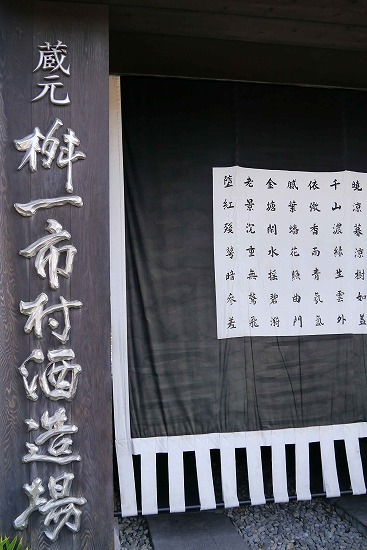 蔵元
桝一市村酒造場
曉涼暮涼樹如蓋
千山濃緑生雲外
依微香雨青氛氳
膩葉蟠花照曲門
金塘閑水搖碧漪
老景沈重無驚飛
堕紅残萼暗参差